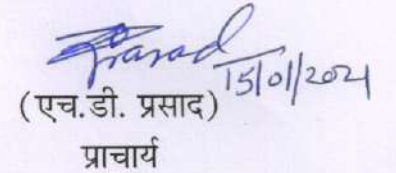 Prasad
15/01/2021
(एच.डी. प्रसाद)
प्राचार्य